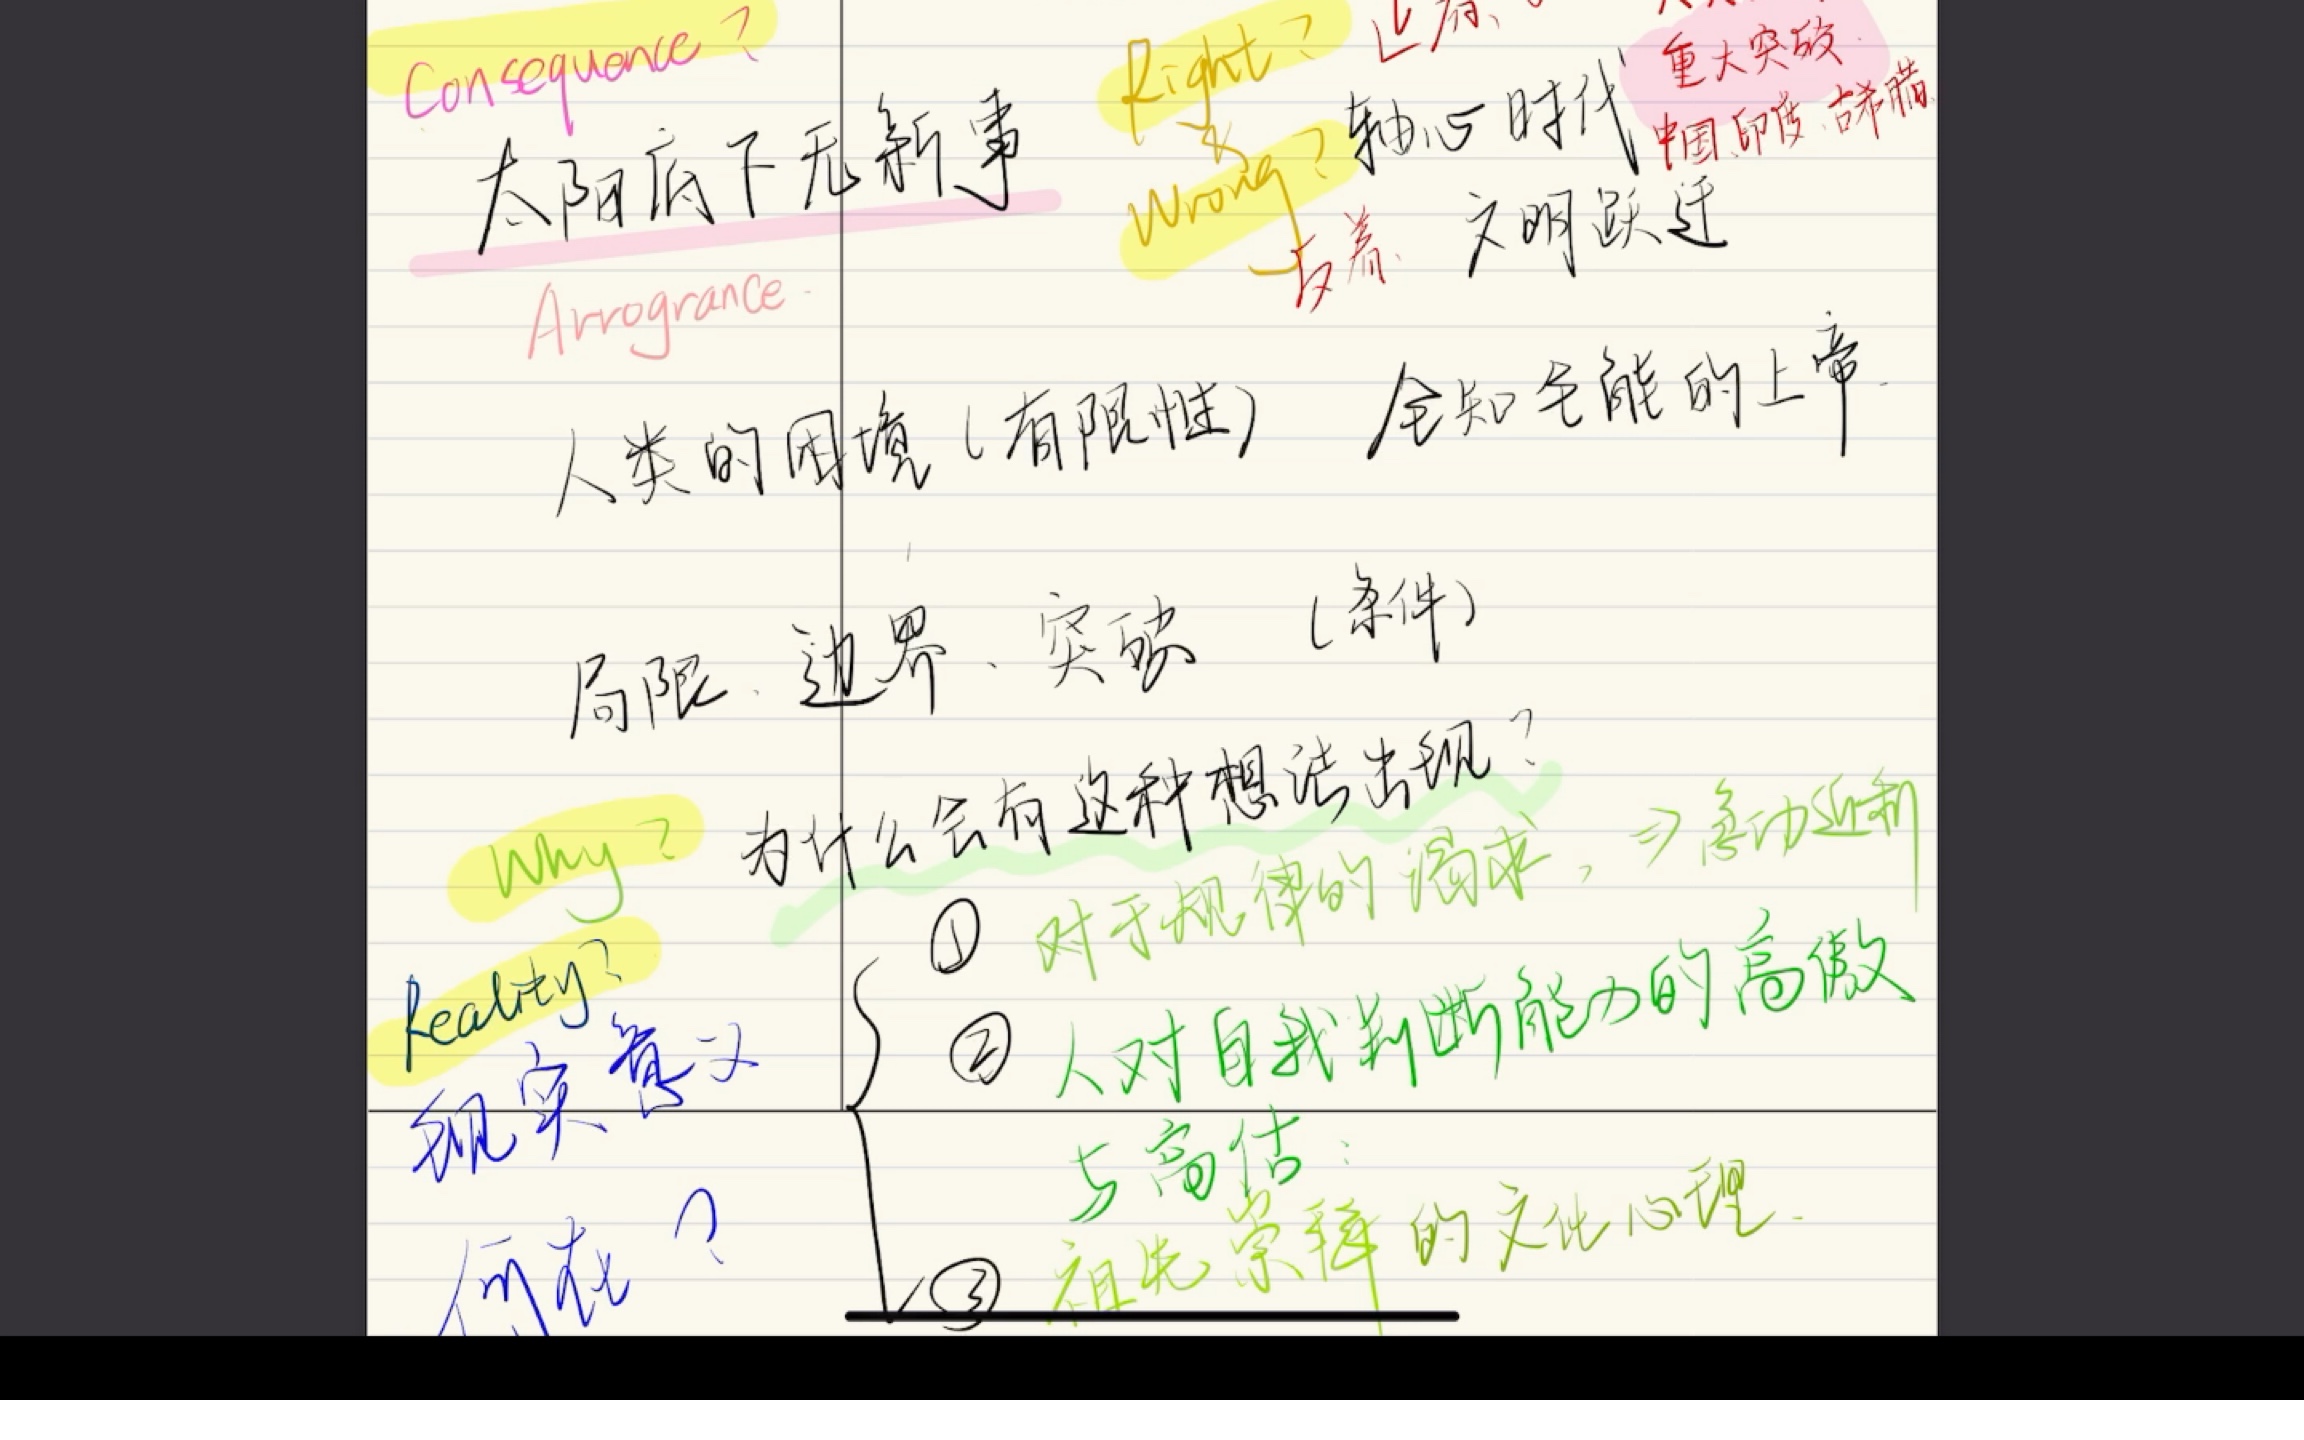 Consequence?
Right?
&
Wrong?
重大突破
中国、印度、古希腊、
轴心时代
太阳底下无新事
文明跃迁
Arrogrance.
人类的困境(有限性) 全知全能的上帝.
局限、边界、突破 (条件)
Why? 为什么会有这种想法出现?
① 对于规律的渴求, ⇒急功近利
Reality?
② 人对自我判断能力的高傲
与高估:
现实意义
何在?
③ 祖先崇拜的文化心理.